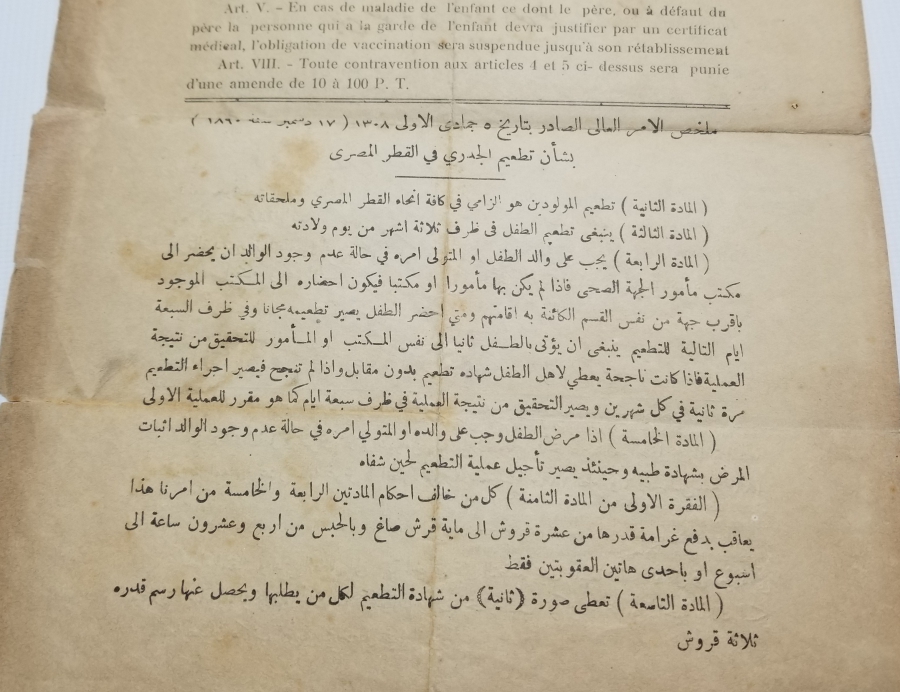 Art. V. - En cas de maladie de l'enfant ce dont le père, ou à défaut du
père la personne qui a la garde de l'enfant devra justifier par un certificat
médical, l'obligation de vaccination sera suspendue jusqu'à son rétablissement
Art. VIII. - Toute contravention aux articles 4 et 5 ci- dessus sera punie
d'une amende de 10 à 100 P. T.
ملخص الامر العالى الصادر بتاريخ ٥ جمادى الاولى ١٣٠٨ ( ١٧ دسمبر سنة ١٨٦٠ )
بشأن تطعيم الجدري في القطر المصرى
( المادة الثانية ) تطعيم المولودين هو الزامي في كافة انحاء القطر المصري وملحقاته
( المادة الثالثة ) ينبغى تطعيم الطفل فى ظرف ثلاثة اشهر من يوم ولادته
( المادة الرابعة ) يجب على والد الطفل او المتولى امره في حالة عدم وجود الوالد ان يحضر الى
مكتب مأمور الجهة الصحى فاذا لم يكن بها مأمورا او مكتبا فيكون احضاره الى المكتب الموجود
باقرب جهة من نفس القسم الكائنة به اقامتهم ومتي احضر الطفل يصير تطعيمه مجانا وفي ظرف السبعة
ايام التالية للتطعيم ينبغى ان يؤتى بالطفل ثانيا الى نفس المكتب او المأمور للتحقيق من نتيجة
العملية فاذا كانت ناجحة يعطي لاهل الطفل شهاده تطعيم بدون مقابل واذا لم تنجح فيصير اجراء التطعيم
مرة ثانية في كل شهرين ويصير التحقيق من نتيجة العملية في ظرف سبعة ايام كما هو مقرر للعملية الاولى
( المادة الخامسة ) اذا مرض الطفل وجب على والده او المتولي امره في حالة عدم وجود الوالد اثبات
المرض بشهادة طبيه وحينئذ يصير تأجيل عملية التطعيم لحين شفاه
( الفقرة الاولى من المادة الثامنة ) كل من خالف احكام المادتين الرابعة والخامسة من امرنا هذا
يعاقب بدفع غرامة قدرها من عشرة قروش الى ماية قرش صاغ وبالحبس من اربع وعشرون ساعة الى
اسبوع او باحدى هاتين العقوبتين فقط
( المادة التاسعة ) تعطى صورة (ثانية) من شهادة التطعيم لكل من يطلبها ويحصل عنها رسم قدره
ثلاثة قروش